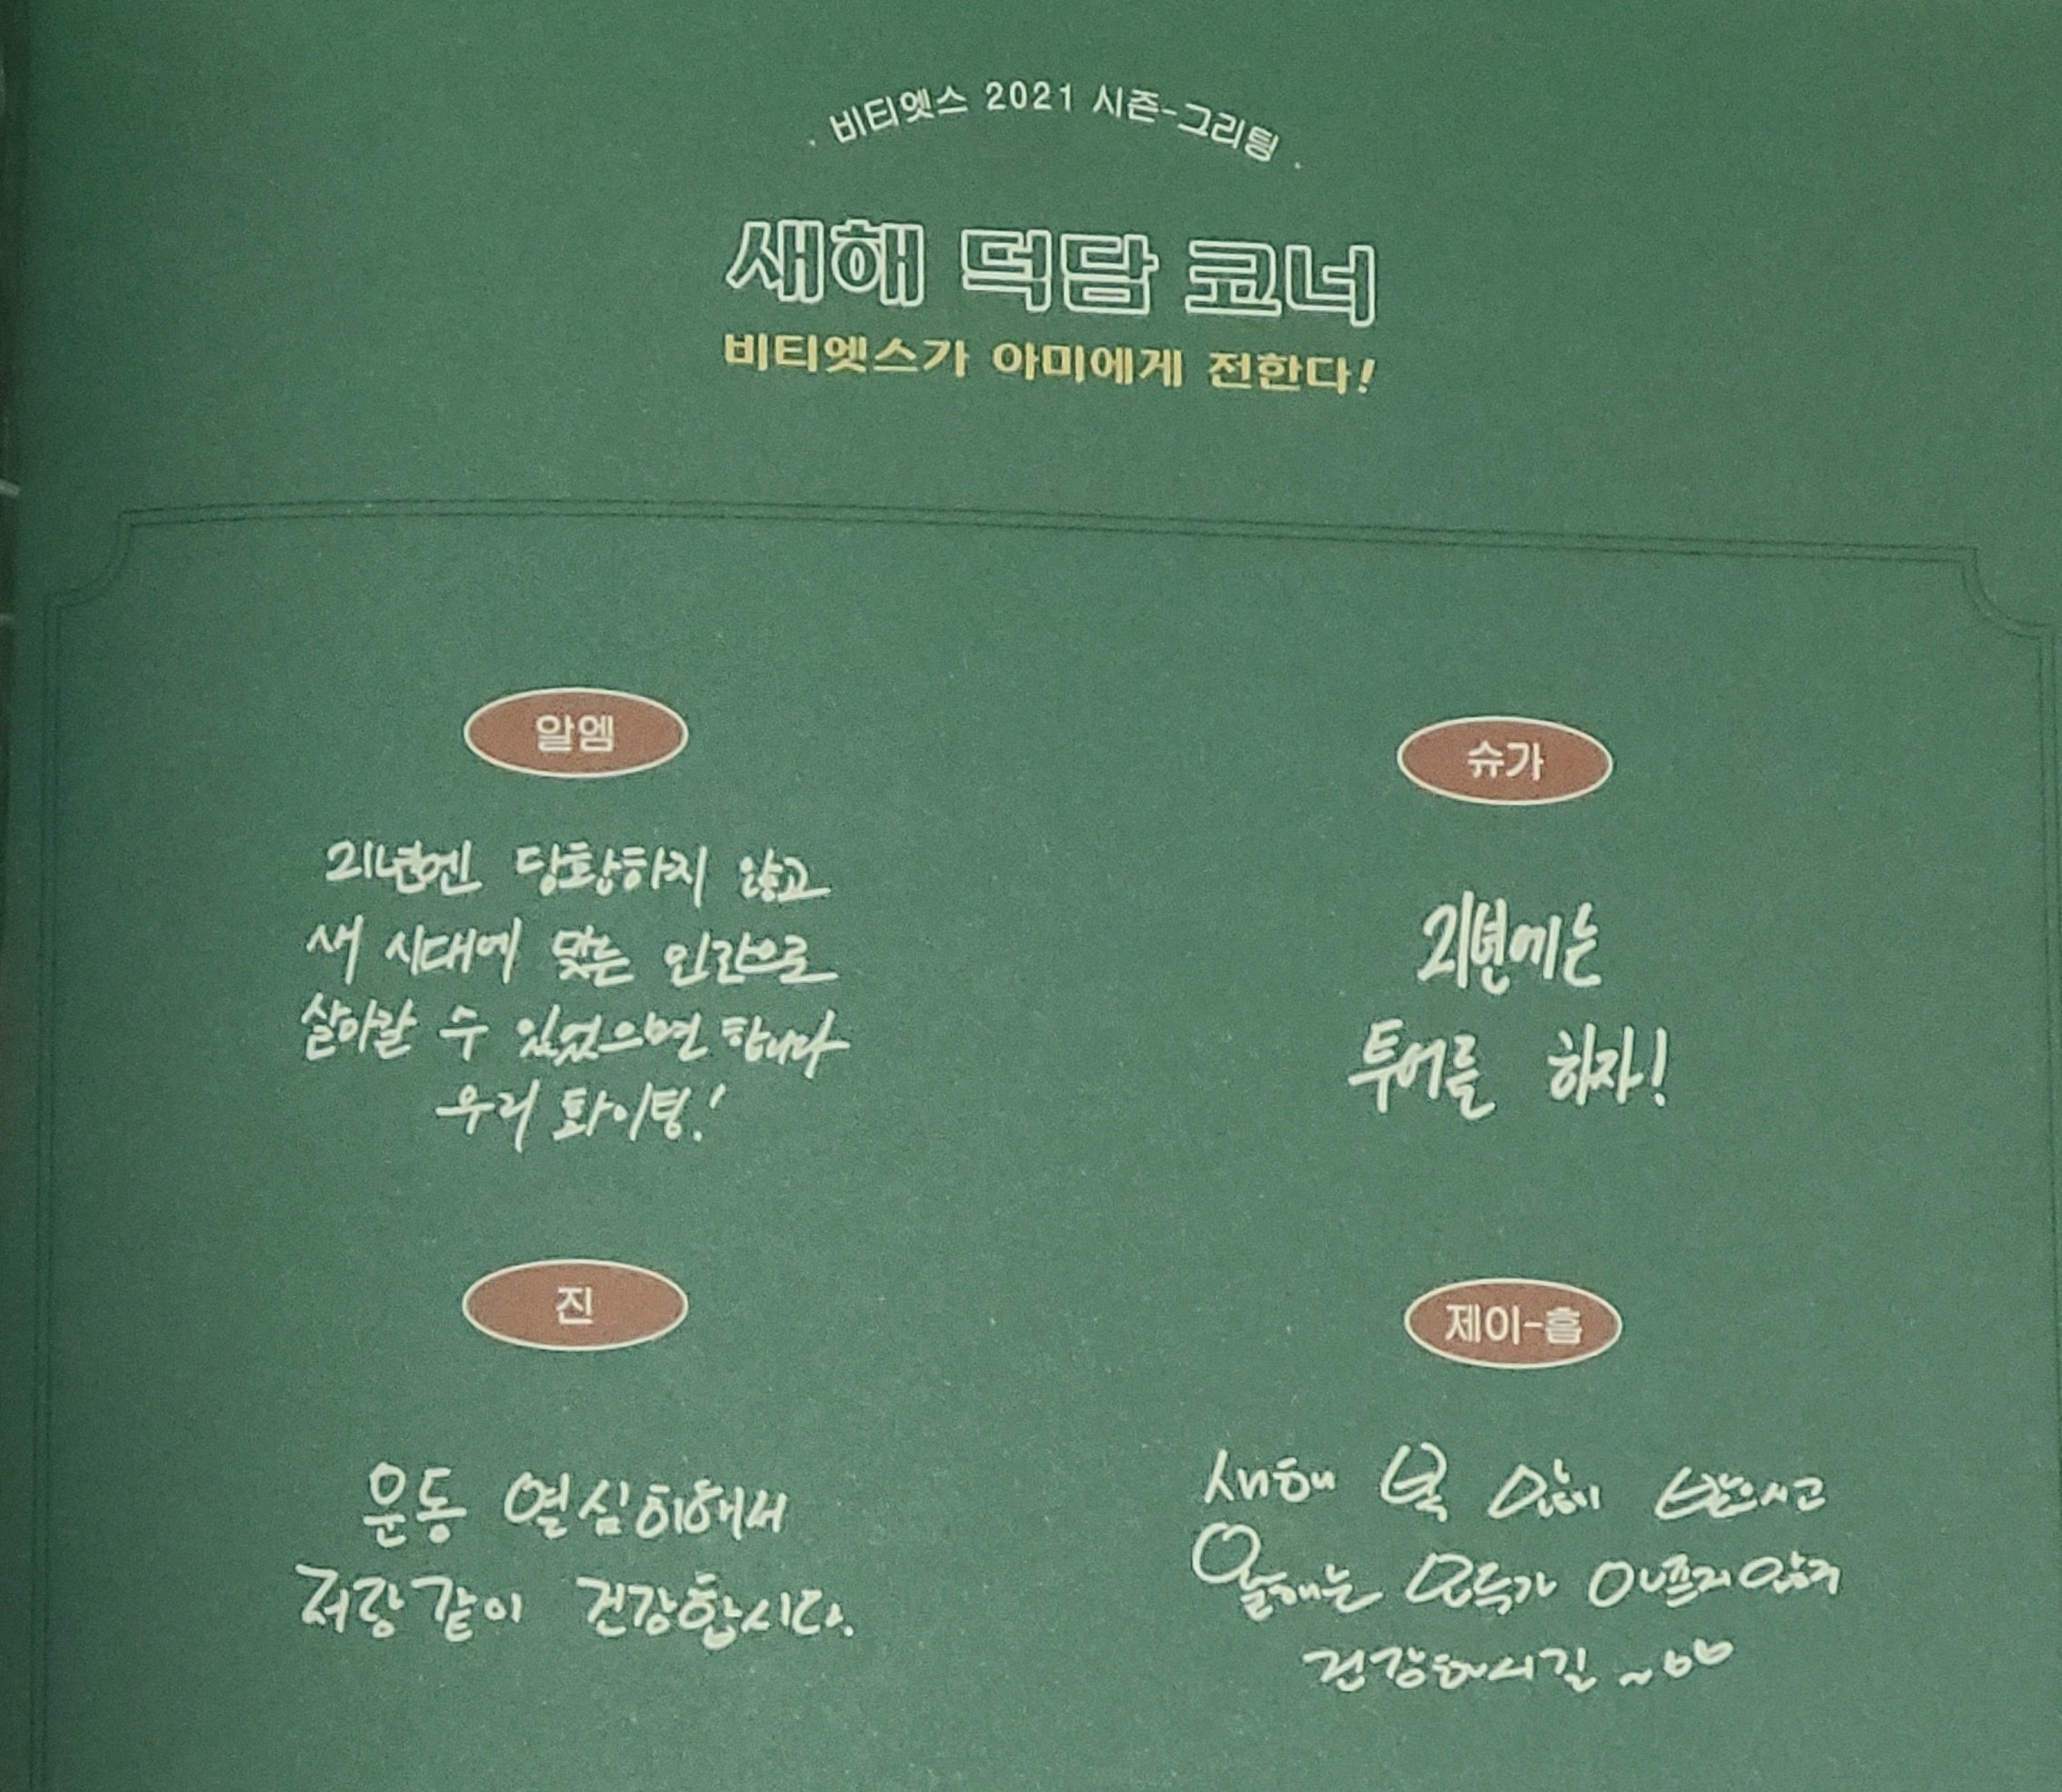 · 비티엣스 2021 시즌-그리팅 ·
새해 덕담 코너
비티엣스가 아미에게 전한다!
알엠
21년엔 당황하지 않고
새 시대에 맞는 인간으로
살아갈 수 있었으면 합니다
우리 화이팅!
슈가
21년에는
투어를 하자!
진
운동 열심히해서
저랑 같이 건강합시다.
제이-홉
새해 복 많이 받으시고
올해는 모두가 아프지않고
건강하시길 ~